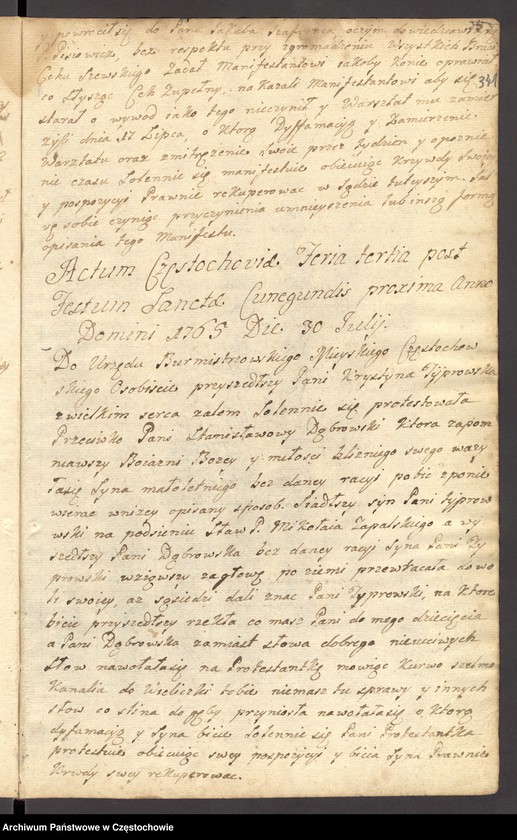 y powrocił się do Pana Jakuba Szafranca oczym dowiedziawszy się
P. Pisiowicz, bez respektu przy zgromadzeniu wszystkich Braci
Cechu Szewskiego Zadał Manifestantowi iakoby Konie oprawował
co słysząc Cech zupełny, na Kazali Manifestantowi aby się
341
starał o wywod iako tego nieczynił y Warsztat mu zamier
zyli dnia 17 Lipca, o Którą Dyffamacyją y Zamierzenie
Warztatu oraz zmitrężenie swoie przez tydzien y opoznie
nie czasu Solennie się manifestuie obiecuiąc Krzywdy swoiey
y pospozycyi Prawnie rekuperowac w Sądzie tuteyszym. Sal
vę sobie czyniąc przyczynienia umnieyszenia lub inszą formą
opisania tego Manifestu.
Actum Częstochoviæ Feria tertia post
Festum Sanctæ Cunegundis proxima Anno
Domini 1765 Die 30 Iulij.
Do Urzędu Burmistrzowskiego Mieyskiego Częstochow
skiego Osobiscie przyszedłszy Pani Krystyna Typrowska
z wielkim serca zalem Solennie się protestowała
Przeciwko Pani Stanisławowy Dąbrowski Ktora zapom
niawszy Boiazni Bozey y miłosci blizniego swego wazy
łasię Syna małoletniego bez daney racyi pobic zponie
wierac wnizey opisany sposob. Siadłszy syn Pani Typrow
wski na podsieniu Sław P. Mikołaia Zapalskiego a wy
szedłszy Pani Dąbrowska bez daney racyi Syna Pani Ty
prowski wziąwszy zagłowę po ziemi przewłacała do wo
li swoiey, az sąsiedzi dali znac Pani Typrowski, na Ktore
bicie przyszedłszy rzekła co masz Pani do mego dziecięcia
a Pani Dąbrowska zamiast słowa dobrego nieuczciwych
słow nawołałasię na Protestantkę mowiąc Kurwo szelmo
Kanalia do Wieliczki tobie niemasz tu sprawy y innych
słow co slina do gęby przyniosła nawołałasię o Ktorą
dyfamacyją y Syna bicie Solennie się Pani Protestantka
protestuie obiecuiąc swey pospozycyi y bicia Syna Prawnie
Krzwdy swey rekuperowac.
Archiwum Państwowe w Częstochowie